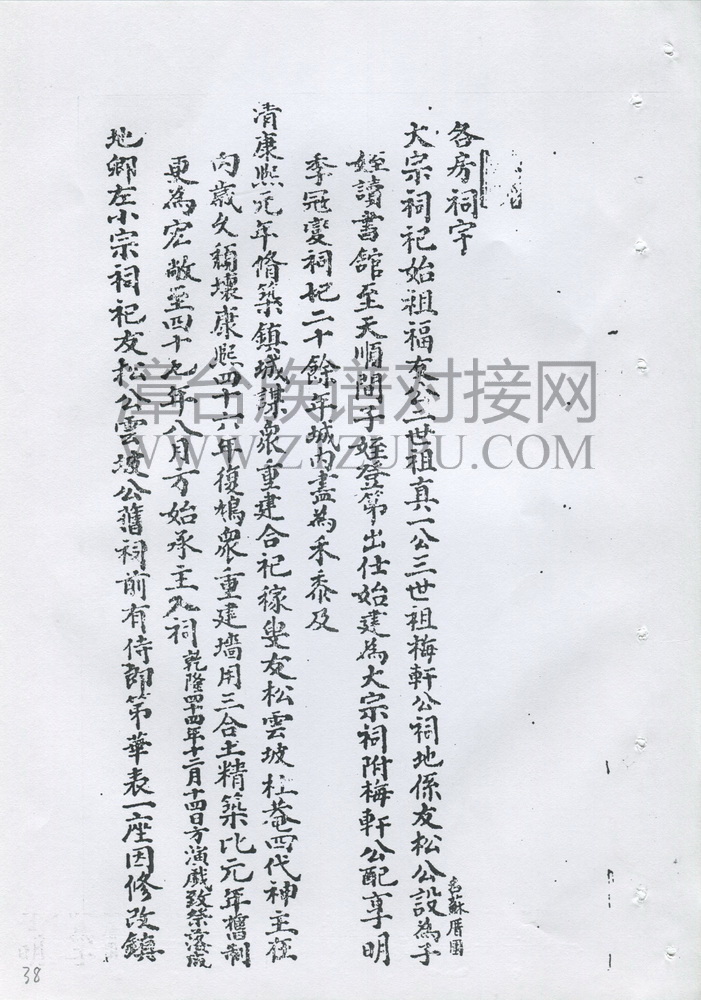 各房祠宇
大宗祠祀始祖福友公二世祖真一公三世祖梅軒公祠地係友松公設為子
名蘇厝園
姪讀書館至天順間子姪登第出仕始建為大宗祠附梅軒公配享明
季冠變祠圮二十餘年城內盡為禾黍及
清康熙元年脩築鎮城謀衆重建合祀稼叟友松雲坡杜菴四代神主在
內歲久頹壞康熙四十六年復鳩衆重建墙用三合土精築比元年舊制
更為宏敞至四十九年八月方始承主入祠
乾隆四十四年十二月十四日方演戲致祭落成
地鄉左小宗祠祀友松公雲坡公舊祠前有侍郎第華表一座因修改鎮
漳台族谱对接网
WWW.ZTZUPU.COM
38